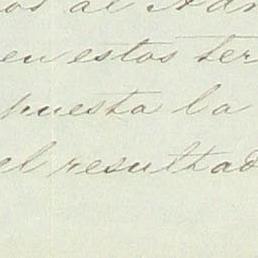 os al Adm
en estos ter
puesta la
el resultad